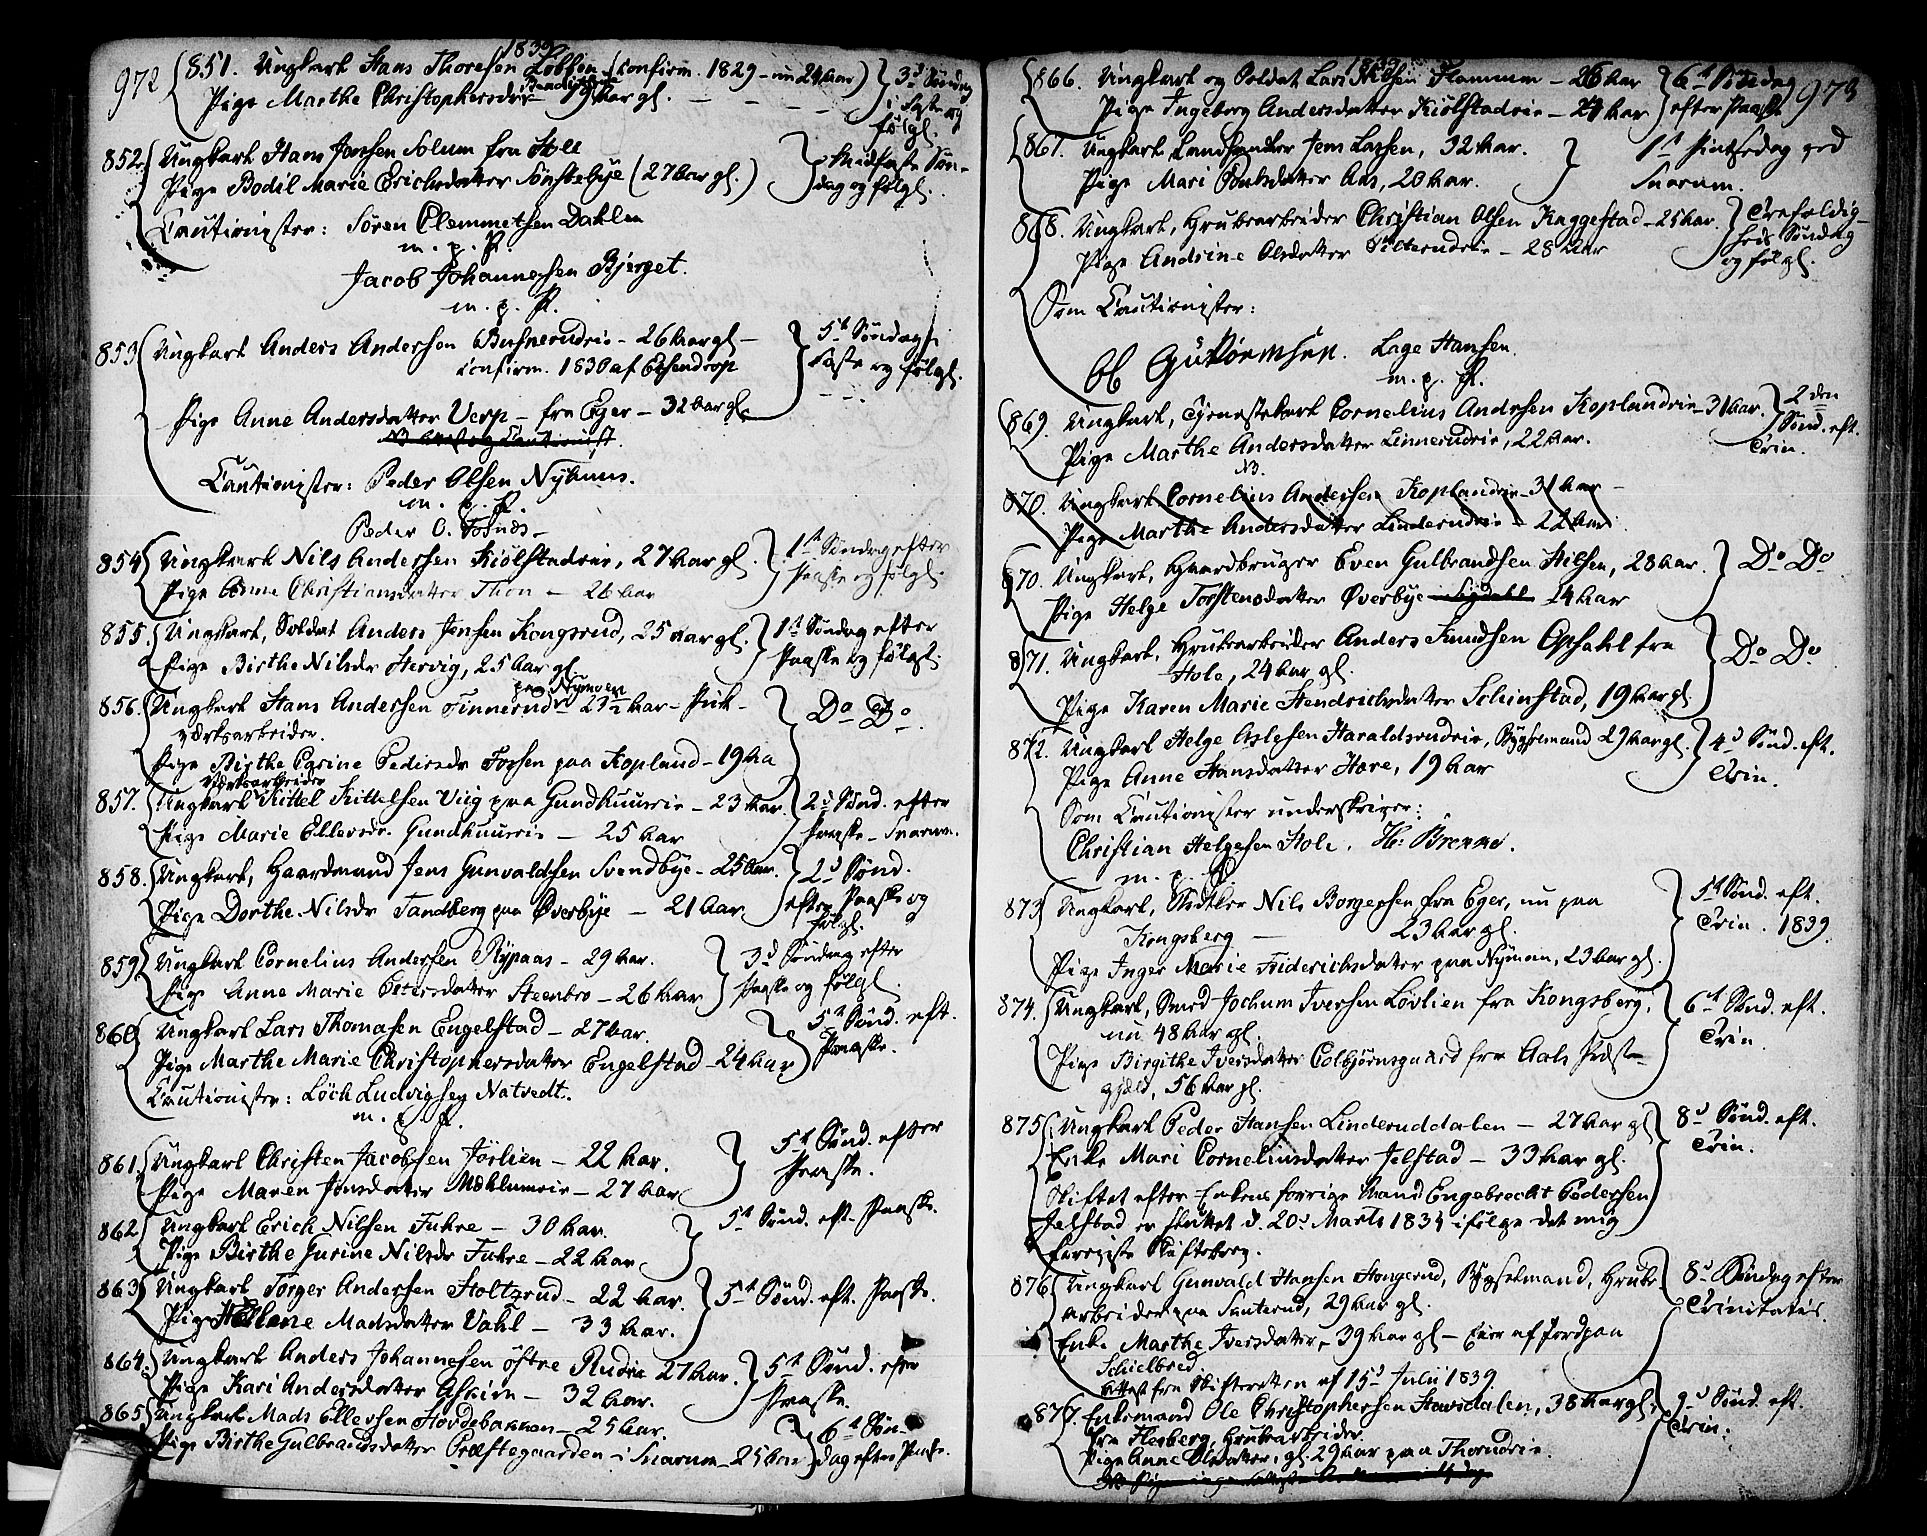 972
1839
851. Ungkarl Hans Thoresen Løbben (confirm. 1829 - nu 24 Aar) 3d Søndag
Pige Marthe Christophersdr 19 Aar gl. i Faste og
følgl.
852. Ungkarl Hans Jonsen Solum fra Hole Midfaste Søn-
Pige Bodil Marie Erichsdatter Sønstebye (27 Aar gl.) dag og følgl.
Cautionister: Søren Clemmetsen Dahlen
m. p. P.
Jacob Johannesen Bjerget.
m. p. P.
853 Ungkarl Anders Andersen Busnerudrie - 26 Aar gl - 5te Søndag i
Confirm. 1830 af Essendrop Faste og følgl.
Pige Anne Andersdatter Verp - fra Eger - 32 Aar gl.
Cautionister: Peder Olsen Nyhuus.
m. p. P.
Peder O. Fosnæs
854 Ungkarl Nils Andersen Kiølstadrie, 27 Aar gl. 1st Søndag efter
Pige Anne Christiansdatter Thon - 26 Aar Paaske og følgl.
855. Ungkarl, Soldat Anders Jensen Kongsrud, 25 Aar gl. 1st Søndag efter
Pige Birthe Nilsdr Hervig, 25 Aar gl. Paaske og følgl.
paa Nymoen
856. Ungkarl Hans Andersen Finnerud 27½ Aar - Blik- Do Do
værksarbeider.
Pige Birthe Carine Pedersdr Fossen paa Kopland - 19 Aa
Værksarbeider
857. Ungkarl Kittel Kittelsen Viig paa Gundhuusrie - 23 Aar. 2d Sønd. efter
Pige Marie Ellevsdr. Gundhuusrie - 25 Aar Paaske - Snarum.
858. Ungkarl, Gaardmand Jens Gunvaldsen Svendbye - 25 Aar. 2d Sønd.
Pige Dorthe Nilsdr Sandberg paa Øverbye - 21 Aar efter Paaske og
følgl.
859 Ungkarl Cornelius Andersen Rypaas - 29 Aar. 3d Søndag efter
Pige Anne Marie Petersdatter Steenbro - 26 Aar Paaske og følgl.
860 Ungkarl Lars Thomasen Engelstad - 27 Aar. 5te Sønd. eft.
Pige Marthe Marie Christophersdatter Engelstad - 24 Aar Paaske.
Cautionister: Löch Ludvigsen Natvedt.
m. p. P.
861. Ungkarl Christen Jacobsen Jørlien - 22 Aar. 5te Sønd. efter
Pige Maren Jonsdatter Mæhlumrie - 27 Aar Paaske.
862 Ungkarl Erich Nilsen Fuhre - 30 Aar. 5te Sønd. eft. Paaske.
Pige Birthe Gurine Nilsdr Fuhre - 22 Aar
863 Ungkarl Torger Andersen Holtzrud - 22 Aar. 5te Sønd. eft. Paaske.
Pige Hellene Madsdatter Vahl - 33 Aar.
864. Ungkarl Anders Johannesen østre Rudrie 27 Aar. 5te Sønd. efter
Pige Kari Andersdatter Askim - 32 Aar. Paaske.
865 Ungkarl Mads Ellefsen Hovdebakken - 25 Aar. 6te Søn-
Pige Birthe Gulbrandsdatter Præstegaarden i Snarum - 25 Aar dag efter Paaske.
973
1839
866. Ungkarl og Soldat Lars Nilsen Flammen - 26 Aar 6te Søndag
Pige Ingeborg Andersdatter Kiølstadrie - 24 Aar efter Paaske
867. Ungkarl, Landhandler Jens Larsen, 32 Aar. 1st Pintsedag ved
Pige Mari Poulsdatter Aas, 20 Aar. Snarum.
868. Ungkarl, Grubearbeider Christian Olsen Kaggestad - 25 Aar. Trefoldig-
Pige Andrine Olsdatter - 28 Aar heds Søndag
og følgl.
Som Cautionister:
Ol Guttormsen. Lage Hansen.
m. p. P.
869. Ungkarl, Tjenestekarl Cornelius Andersen Koplandrie - 31 Aar. 2den
Pige Marthe Andersdatter Linnerudrie, 22 Aar. Sønd. eft.
Trin.
NB.
870. Ungkarl Cornelius Andersen Koplandrie - 31 Aar -
Pige Marthe Andersdatter Linderudrie - 22 Aar.
870. Ungkarl, Gaardbruger Even Gulbrandsen Nilsen, 28 Aar. Do Do
Pige Helge Torstensdatter Øverbye Sigdahl 24 Aar
871. Ungkarl, Grubearbeider Anders Knudsen Opsahl fra Do Do
Hole, 24 Aar gl.
Pige Karen Marie Hendrichsdatter Schinstad, 19 Aar gl.
872. Ungkarl Helge Aslesen Haraldsrudrie, Bygselmand 29 Aar gl. 4d Sønd. eft.
Pige Anne Hansdatter Hære, 19 Aar Trin.
Som Cautionister underskriver:
Christian Helgesen Hole. H: Brenne.
m. p. P.
873 Ungkarl, Snedker Nils Borgersen fra Eger, nu paa 5te Sønd. eft.
Kongsberg - 23 Aar gl. Trin. 1839.
Pige Inger Marie Friderichsdatter paa Nymoen, 23 Aar gl.
874. Ungkarl, Smed Jochum Iversen Løvlien fra Kongsberg, 6te Sønd. eft.
nu 48 Aar gl. Trin.
Pige Birgithe Iversdatter Colbjørnsgaard fra Aals Præste-
gjeld, 56 Aar gl.
875 Ungkarl Peder Hansen Linderuddalen - 27 Aar gl 8d Sønd. eft.
Enke Mari Corneliusdatter Jelstad - 33 Aar gl. Trin.
Skiftet efter Enkens forrige Mand Engebrecht Pedersen
Jelstad er sluttet d. 20d Marts 1834 ifølge det mig
foreviste Skiftebrev.
876 Ungkarl Gunvald Hansen Hongerud, Bygselmand, Grube- 8d Søndag efter
arbeider paa Santerud, 29 Aar gl. Trinitatis.
Enke Marthe Iversdatter, 39 Aar gl - Eier af Jord paa
Schielbred.
Attest fra Skifteretten af 15d Julii 1839.
877. Enkemand Ole Christophersen Havsdalen, 38 Aar gl. 9d Sønd. eft.
fra Flesberg, Grubearbeider. Trin.
Pige Anne Olsdatter, gl. 29 Aar paa Thorudrie.